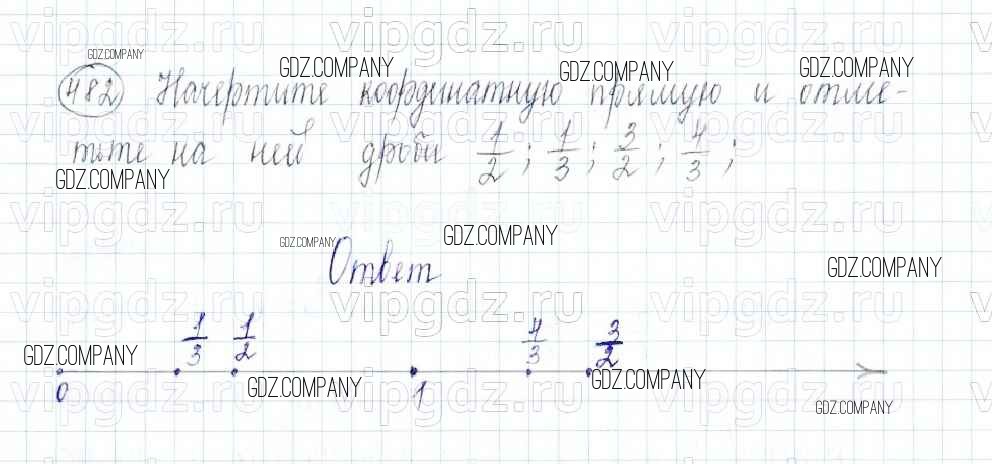 482 Начертите координатную прямую и отме-
тьте на ней дроби 1/2; 1/3; 3/2; 4/3;
Ответ
1/3 1/2 4/3 3/2
0 1
GDZ.COMPANY
GDZ.COMPANY
GDZ.COMPANY
GDZ.COMPANY
GDZ.COMPANY
GDZ.COMPANY
GDZ.COMPANY
GDZ.COMPANY
GDZ.COMPANY
GDZ.COMPANY
GDZ.COMPANY
GDZ.COMPANY
vipgdz.ru vipgdz.ru vipgdz.ru
vipgdz.ru vipgdz.ru vipgdz.ru
vipgdz.ru vipgdz.ru vipgdz.ru
vipgdz.ru vipgdz.ru vipgdz.ru
vipgdz.ru vipgdz.ru vipgdz.ru